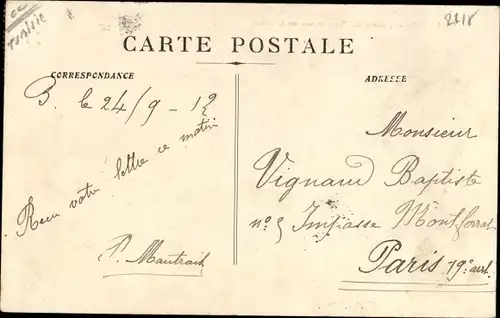 2218
CARTE POSTALE
CORRESPONDANCE
ADRESSE
B. le 24/9 - 12
Recu votre lettre ce matin
Monsieur
Vignaud Baptiste
n° 5 Impasse Montferrat
Paris 19e arr.